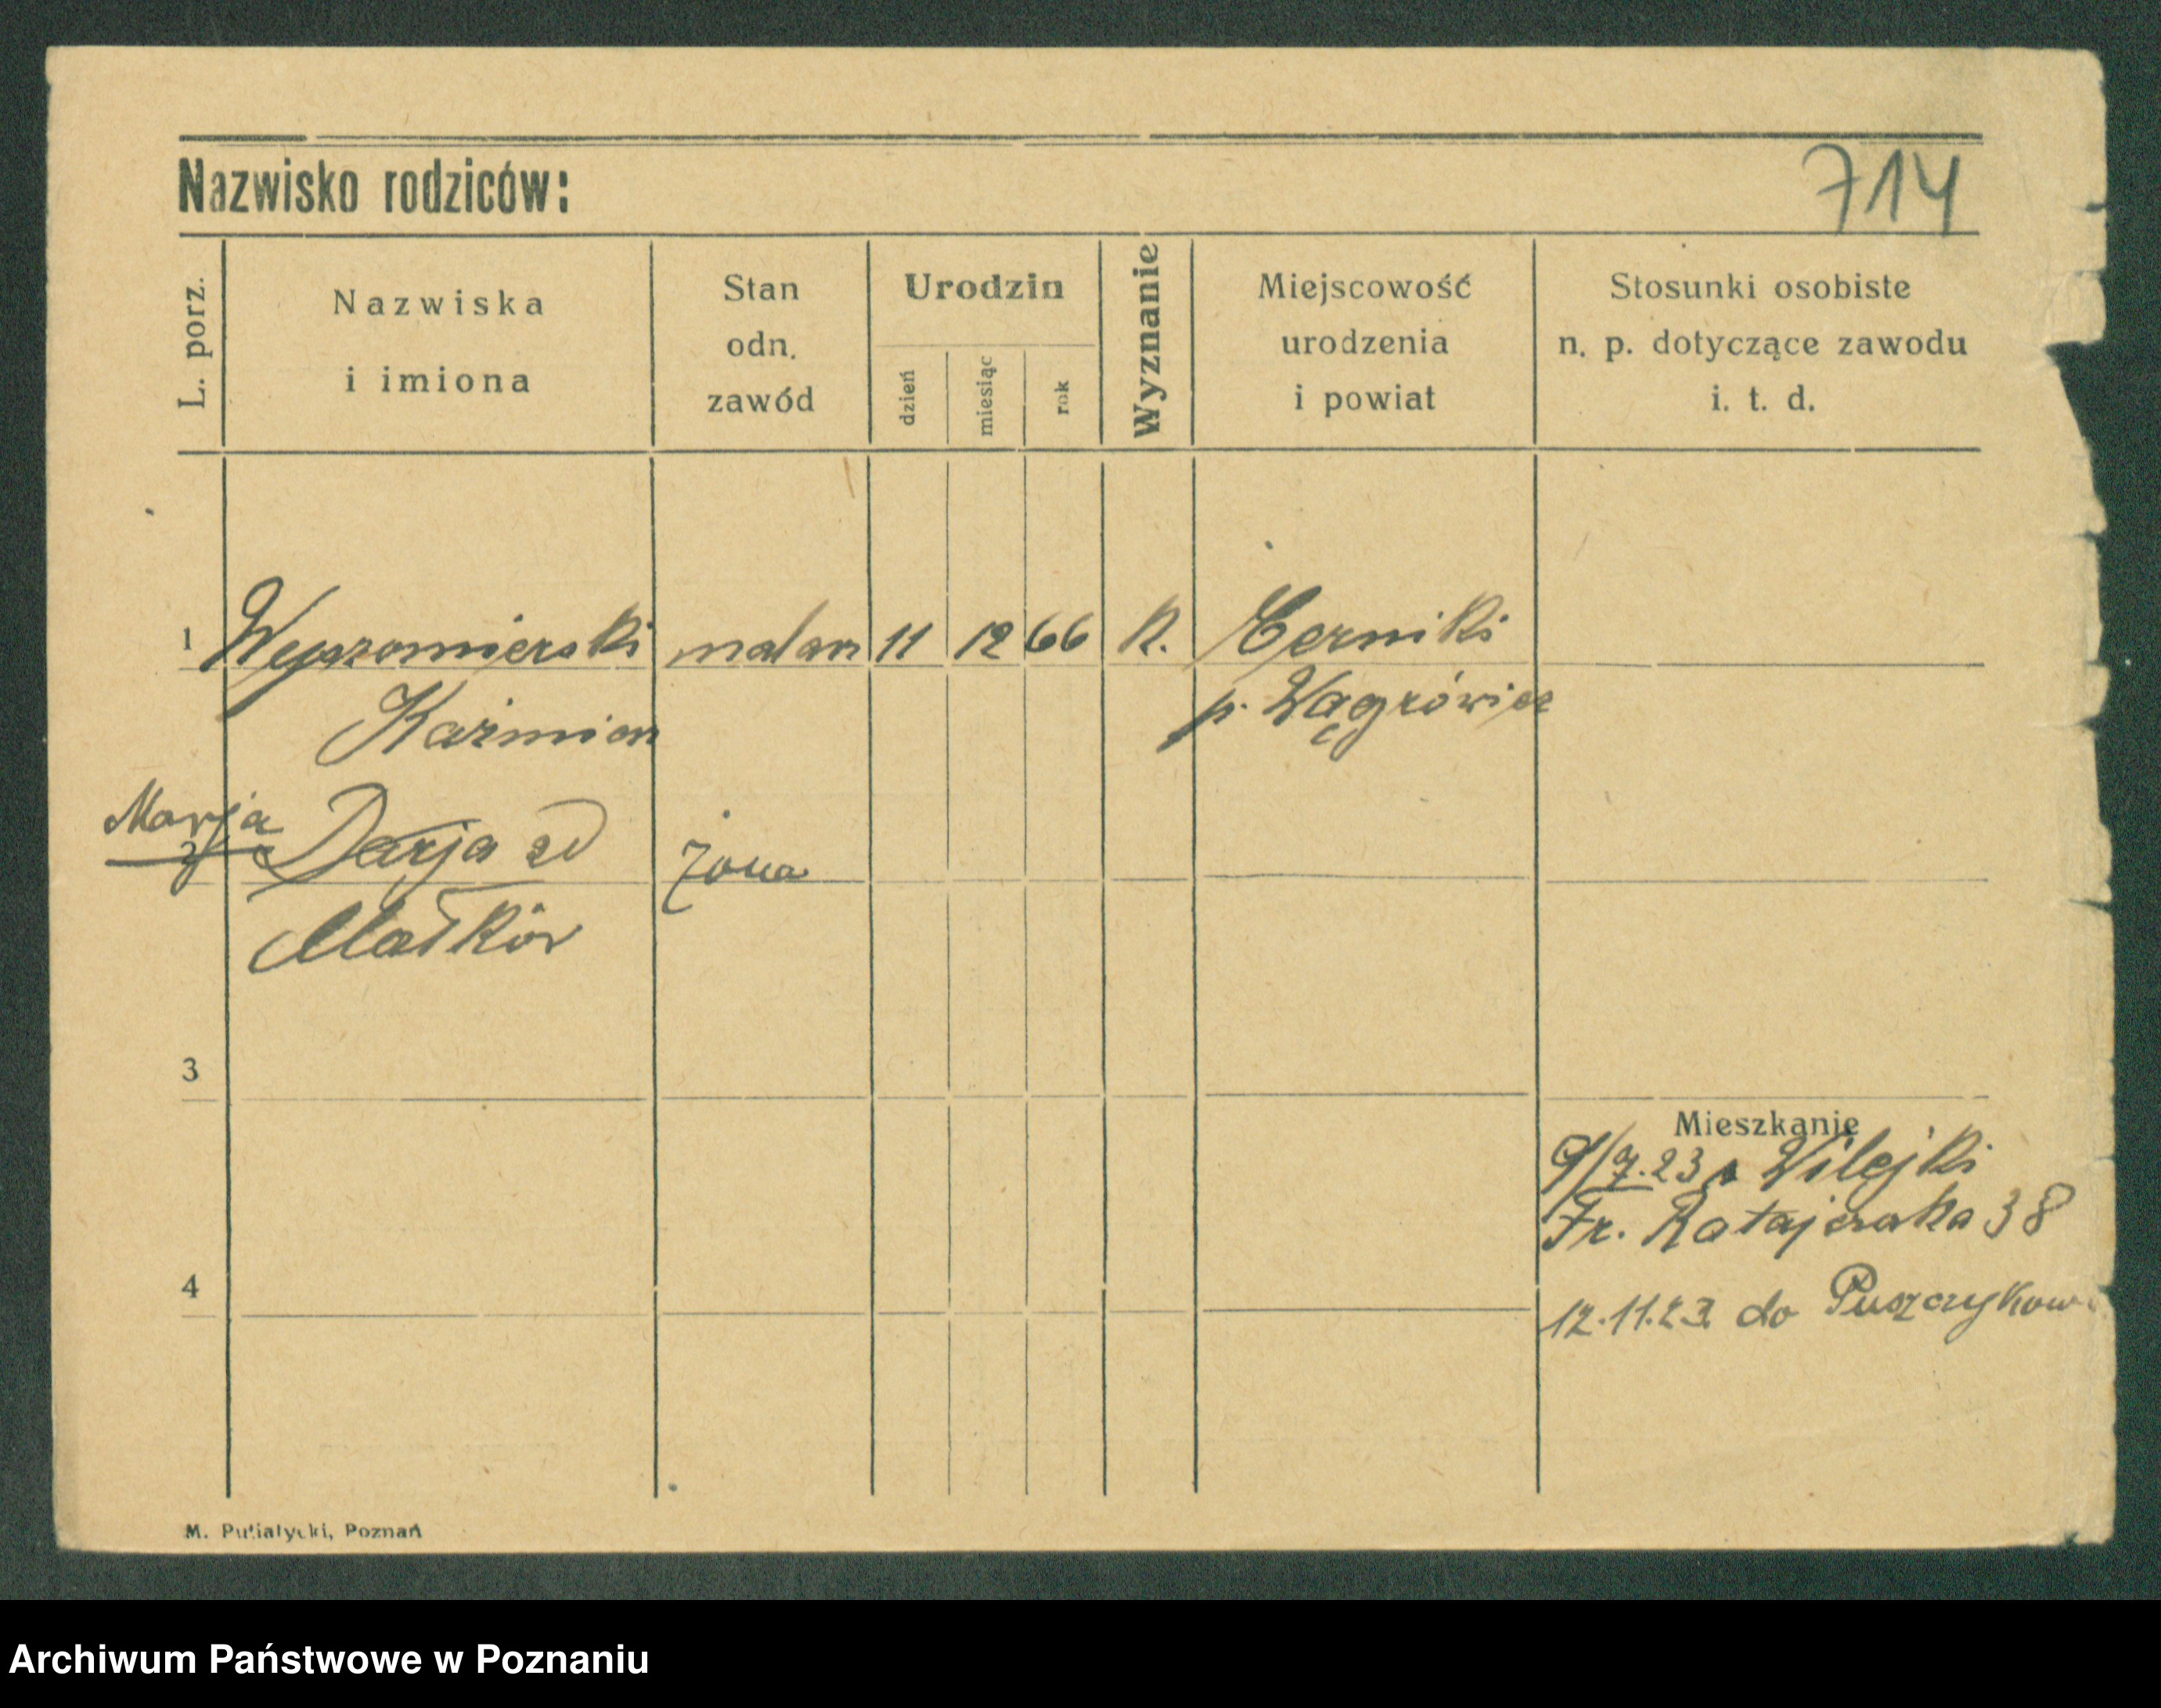 Nazwisko rodziców:
714
L. porz.
Nazwiska
i imiona
Stan
odn.
zawód
Urodzin
dzień
miesiąc
rok
Wyznanie
Miejscowość
urodzenia
i powiat
Stosunki osobiste
n. p. dotyczące zawodu
i. t. d.
1 Wyszomierski malarz 11 12 66 k. Żerniki
Kaźmierz p. Wągrówiec
Marja
2 Darja żona
Małków
3
Mieszkanie
9/7.23 Wilejki
Fr. Ratajczaka 38
4
12.11.23 do Puszczykow
M. Putiatycki, Poznań
Archiwum Państwowe w Poznaniu